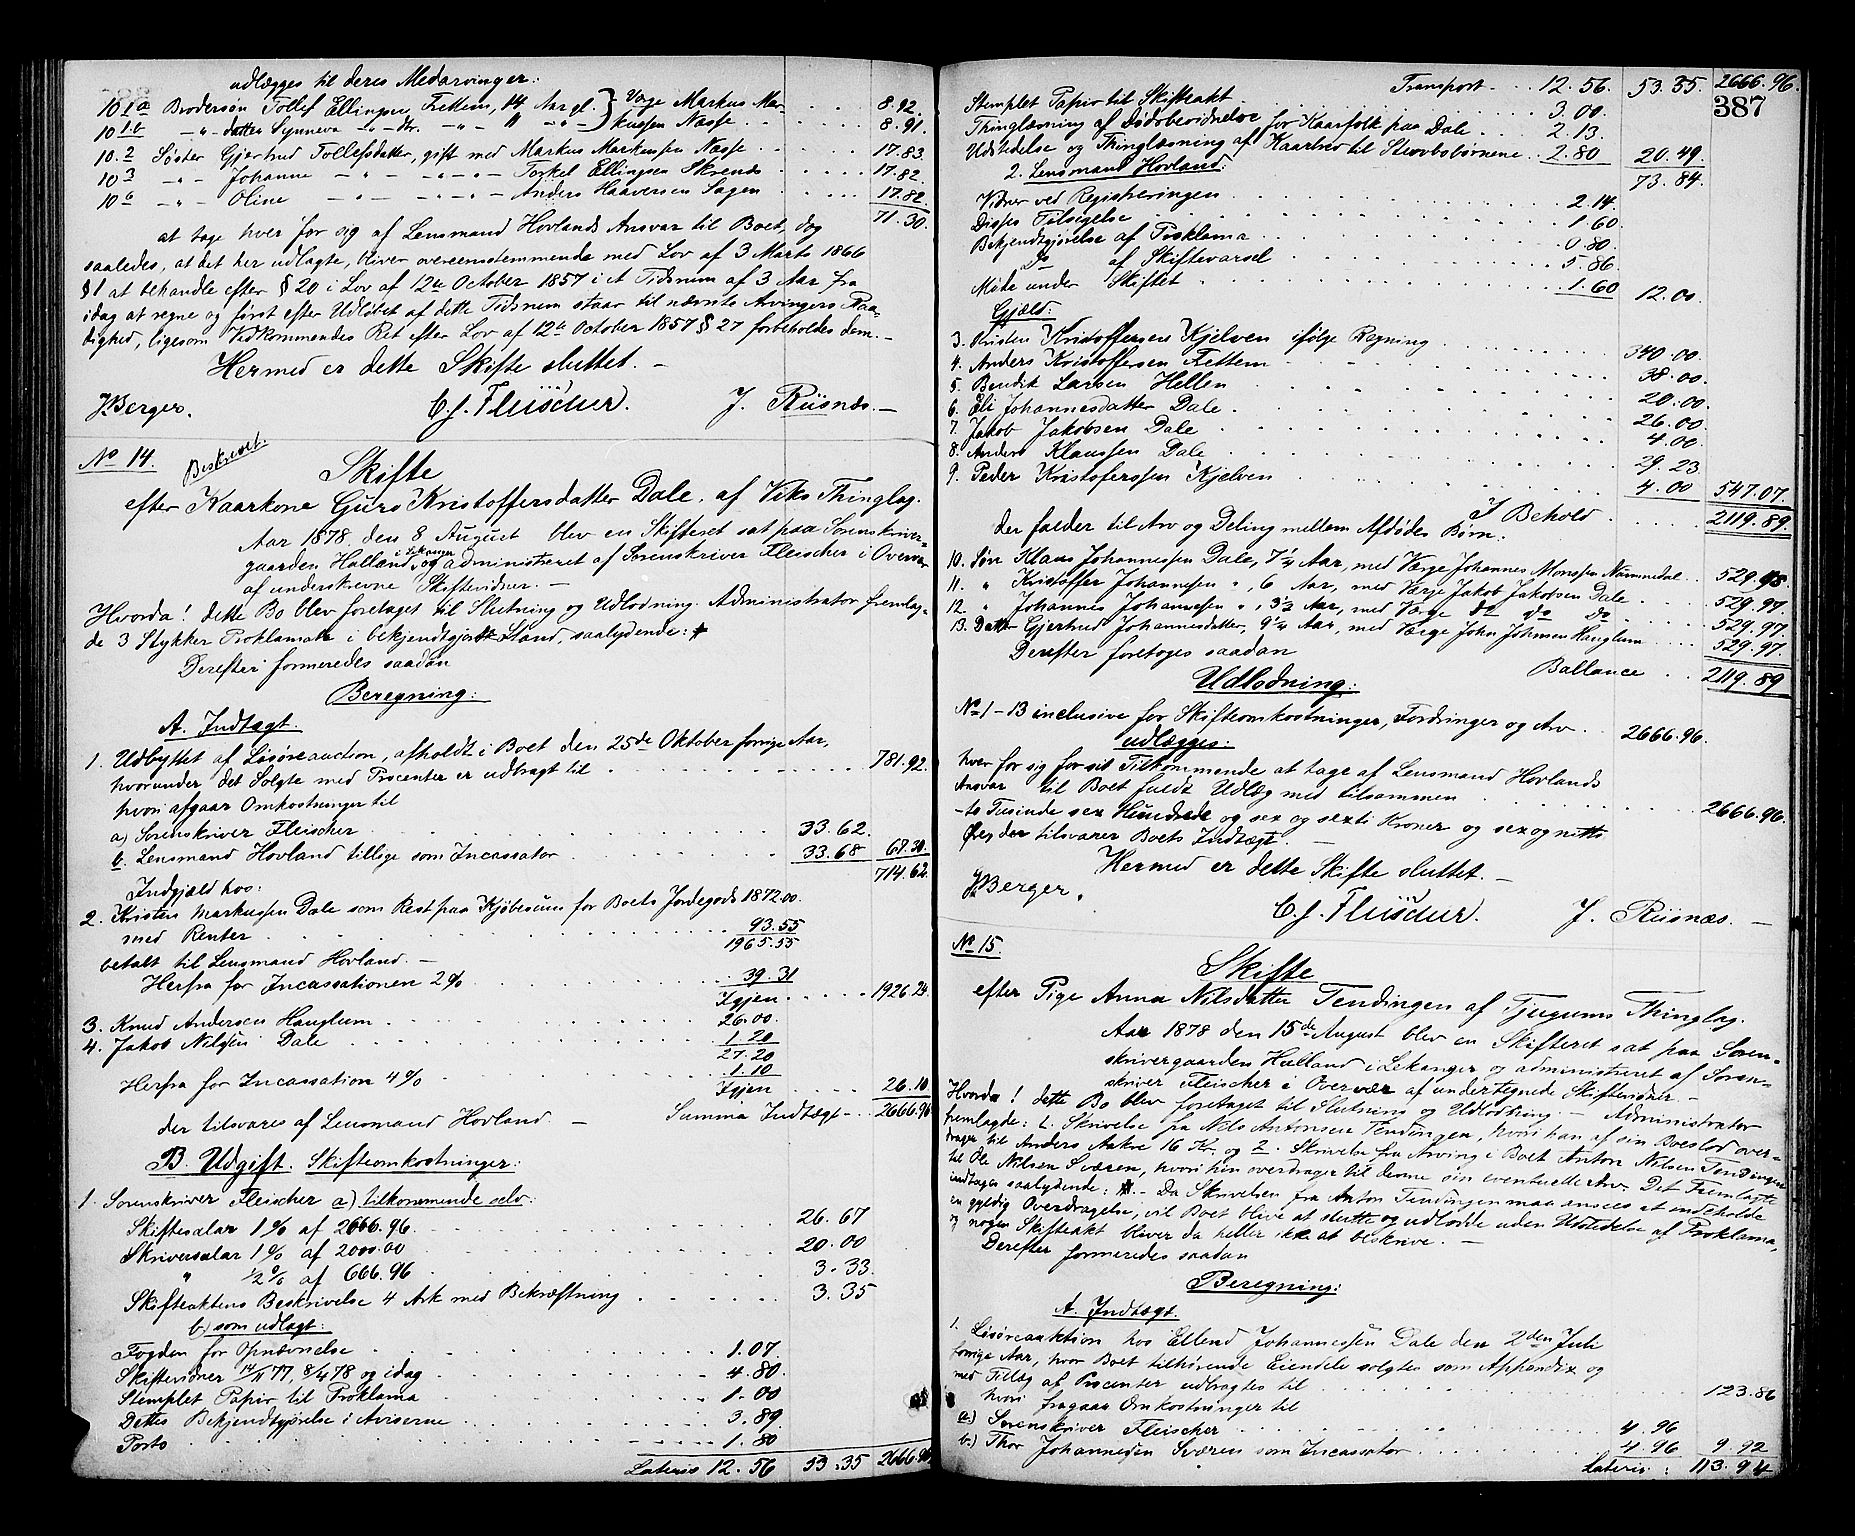 udlægges til deres Medarvinger:
10 1a Brodersøn Tollef Ellingsen Fettem, 14 Aar gl. } Værge Markus Mar- 8.92.
10 1.b -"- datter Synneva -"- -"- " -"- } kussen Næsse 8.91.
10.2 Søster Gjertrud Tollefsdatter, gift med Markus Markussen Næsse 17.83.
10 3 -"- Johanne -"- -"- -"- Torkel Ellingsen Skrenes 17.82
10 -"- Oline -"- -"- -"- Anders Haaversen Sagen 17.82.
71.30.
at tage hver for sig af Lensmand Hovlands Ansvar til Boet, dog
saaledes, at det her udlagte, bliver overeensstemmende med Lov af 3 Marts 1866
§ 1 at behandle efter § 20 i Lov af 12te October 1857 i et Tidsrum af 3 Aar fra
idag at regne og først efter Udløbet af dette Tidsrum staar til nærmeste Arvingers Raa-
dighed, ligesom Vedkommendes Ret efter Lov af 12te October 1857 § 27 forbeholdes dem.-
Hermed er dette Skifte sluttet. -
J. Berger. C. J. Fleischer. J. Riisnæs. -
No 14. Beskrevet.
Skifte
efter Kaarkone Guro Kristoffersdatter Dale, af Viks Thinglag.
Aar 1878, den 8 August blev en Skifteret sat paa Sorenskriver-
gaarden Hulland i Lekanger og administreret af Sorenskriver Fleischer i Overvær
af underskrevne Skiftevidner. -
Hvorda! dette Bo blev foretaget til Slutning og Udlodning. Administrator fremlag-
de 3 Stykker Proklamata i bekjendtgjort Stand, saalydende: *
Derefter formeredes saadan
Beregning:
A. Indtægt.
1. Udbyttet af Løsøreauction, afholdt i Boet den 25de Oktober forrige Aar,
hvorunder det Solgte med Procenter er udbragt til 781.92.
hvori afgaar Omkostninger til
a) Sorenskriver Fleischer 33.62.
b. Lensmand Hovland tillige som Incassator 33.68 67.30.
714.62.
Indgjæld hos:
2. Kristen Markussen Dale som Rest paa Kjøbesum for Boets Jordegods 1872.00.
med Renter 93.55
1965.55
betalt til Lensmand Hovland. -
Herfra for Incassationen 2% 39.31
Igjen 1926.24.
3. Knud Andersen Hauglum 26.00.
4. Jakob Nilsen Dale 1.20
27.20
Herfra for Incassation 4% 1.10
Igjen 26.10
der tilsvares af Lensmand Hovland. - Summa Indtægt - 2666.96
B. Udgift. Skifteomkostninger:
1. Sorenskriver Fleischer a) tilkommende selv:
Skiftesalar 1% af 2666.96. 26.67
Skriversalar 1% af 2000.00 20.00
" 1/2% af 666.96 3.33.
Skifteaktens Beskrivelse 4 Ark med Bekræftning 3.35
b) som udlagt:
Fogden for Opnævnelse 1.07.
Skiftevidner 14/11 77, 8/4 78 og idag 4.80.
Stemplet Papir til Proklama 1.00
Dettes Bekjendtgjørelse i Aviserne 3.89
Porto 1.80
Lateris 12.56 53.35 2666.96
Transport 12.56. 53.35 2666.96.
387
Stemplet Papir til Skifteakt 3.00.
Thinglæsning af Dødsbevidnelse for Kaarfolk paa Dale 2.13.
Udstedelse og Thinglæsning af Kaarbrev til Stervbsbørnene 2.80 20.49.
2. Lensmand Hovland: 73.84.
Vidner ved Registreringen 2.14.
Disses Tilsigelse 1.60
Bekjendtgjørelse af Proklama 0.80.
Do af Skiftevarsel 5.86.
Møde under Skiftet 1.60 12.00.
Gjæld:
3. Kristen Kristoffersen Kjelven ifølge Regning 340.00.
4. Anders Kristoffersen Fettem 38.00.
5. Bendik Larsen Hellen 20.00.
6. Eli Johannesdatter Dale 26.00.
7. Jakob Jakobsen Dale 4.00.
8. Anders Klaussen Dale 29.23
9. Peder Kristofersen Kjelven 4.00 547.07.
I Behold 2119.89.
der falder til Arv og Deling mellem Afdødes Børn.
10. Søn Klaus Johannessen Dale, 7 1/4 Aar, med Værge Johannes Monsen Nummedal 529.98
11. " Kristoffer Johannesen ", 6 Aar, med Værge Jakob Jakobsen Dale 529.97.
12. " Johannes Johannesen ", 3 1/2 Aar, med Værge do do do 529.97.
13. Datter Gjertrud Johannesdatter, 9 1/4 Aar, med Værge John Johnsen Hauglum 529.97.
Derefter foretoges saadan Ballance 2119.89
Udlodning:
No 1-13 inclusive for Skifteomkostninger, Fordringer og Arv 2666.96.
udlægges:
hver for sig for sit Tilkommende at tage af Lensmand Hovlands
Ansvar til Boet fuldt Udlæg med tilsammen 2666.96.
-to Tusinde sex Hundrede og sex og sexti Kroner og sex og nitti
Øre, der tilsvarer Boets Indtægt. -
Hermed er dette Skifte sluttet. -
J. Berger. C. J. Fleischer. J. Riisnæs. -
No 15.
Skifte
efter Pige Anna Nilsdatter Tendingen af Tjugums Thinglag.
Aar 1878 den 15de August blev en Skifteret sat paa Soren-
skrivergaarden Hulland i Lekanger og administreret af Soren-
skriver Fleischer i Overvær af undertegnede Skiftevidner. -
Hvorda! dette Bo blev foretaget til Slutning og Udlodning. - Administrator
fremlagde: 1. Skrivelse fra Nils Antonsen Tendingen, hvori han af sin Boeslod over-
drager til Anders Aakre 16 Kr. og 2. Skrivelse fra Arving i Boet Anton Nilsen Tendingen
til Ole Nilsen Sværen, hvori hin overdrager til denne sin eventuelle Arv. Det Fremlagte
indtages saalydende: *. - Da Skrivelsen fra Anton Tendingen maa ansees at indeholde
en gyldig Overdragelse, vil Boet blive at slutte og udlodde uden Udstedelse af Proklama,
og nogen Skifteakt bliver da heller ikke at beskrive. -
Derefter formeredes saadan
Beregning:
A. Indtægt.
1. Løsøreauktion hos Ellend Johannessen Dale den 2den Juli
forrige Aar, hvor Boet tilhørende Eiendele solgtes som Appendix og
med Tillæg af Procenter udbragtes til 123.86
hvori fragaar Omkostninger til
a.) Sorenskriver Fleischer 4.96
b.) Thor Johannesen Sværen som Incassator 4.96 9.92
Lateris: 113.94